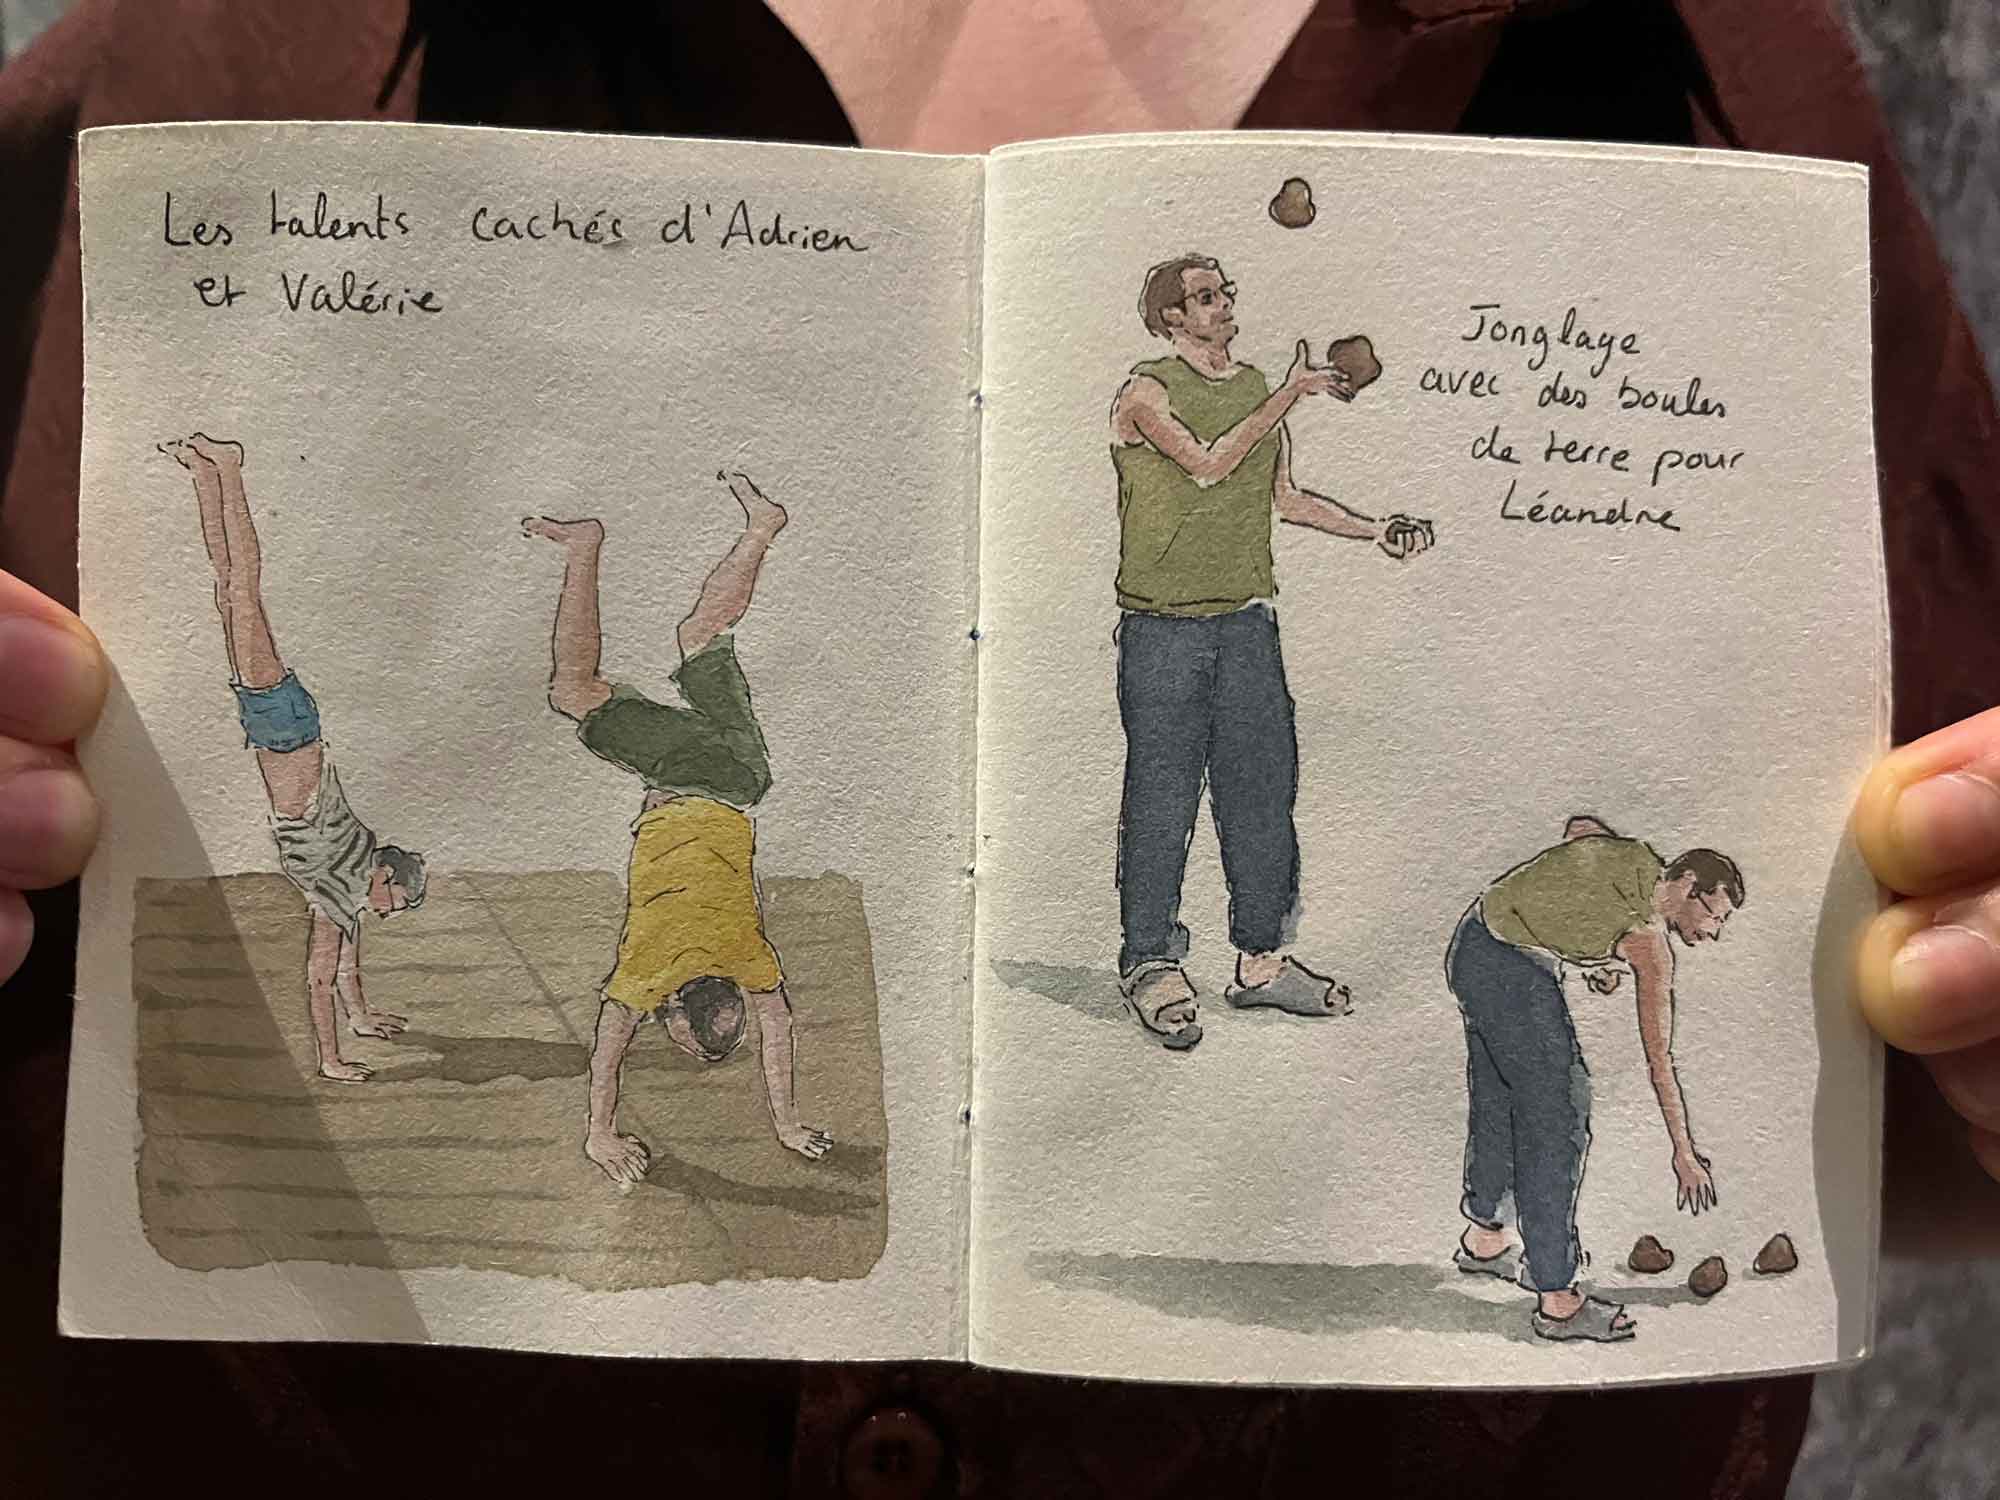 Les talents cachés d'Adrien
et Valérie
Jonglage
avec des boules
de terre pour
Léandre